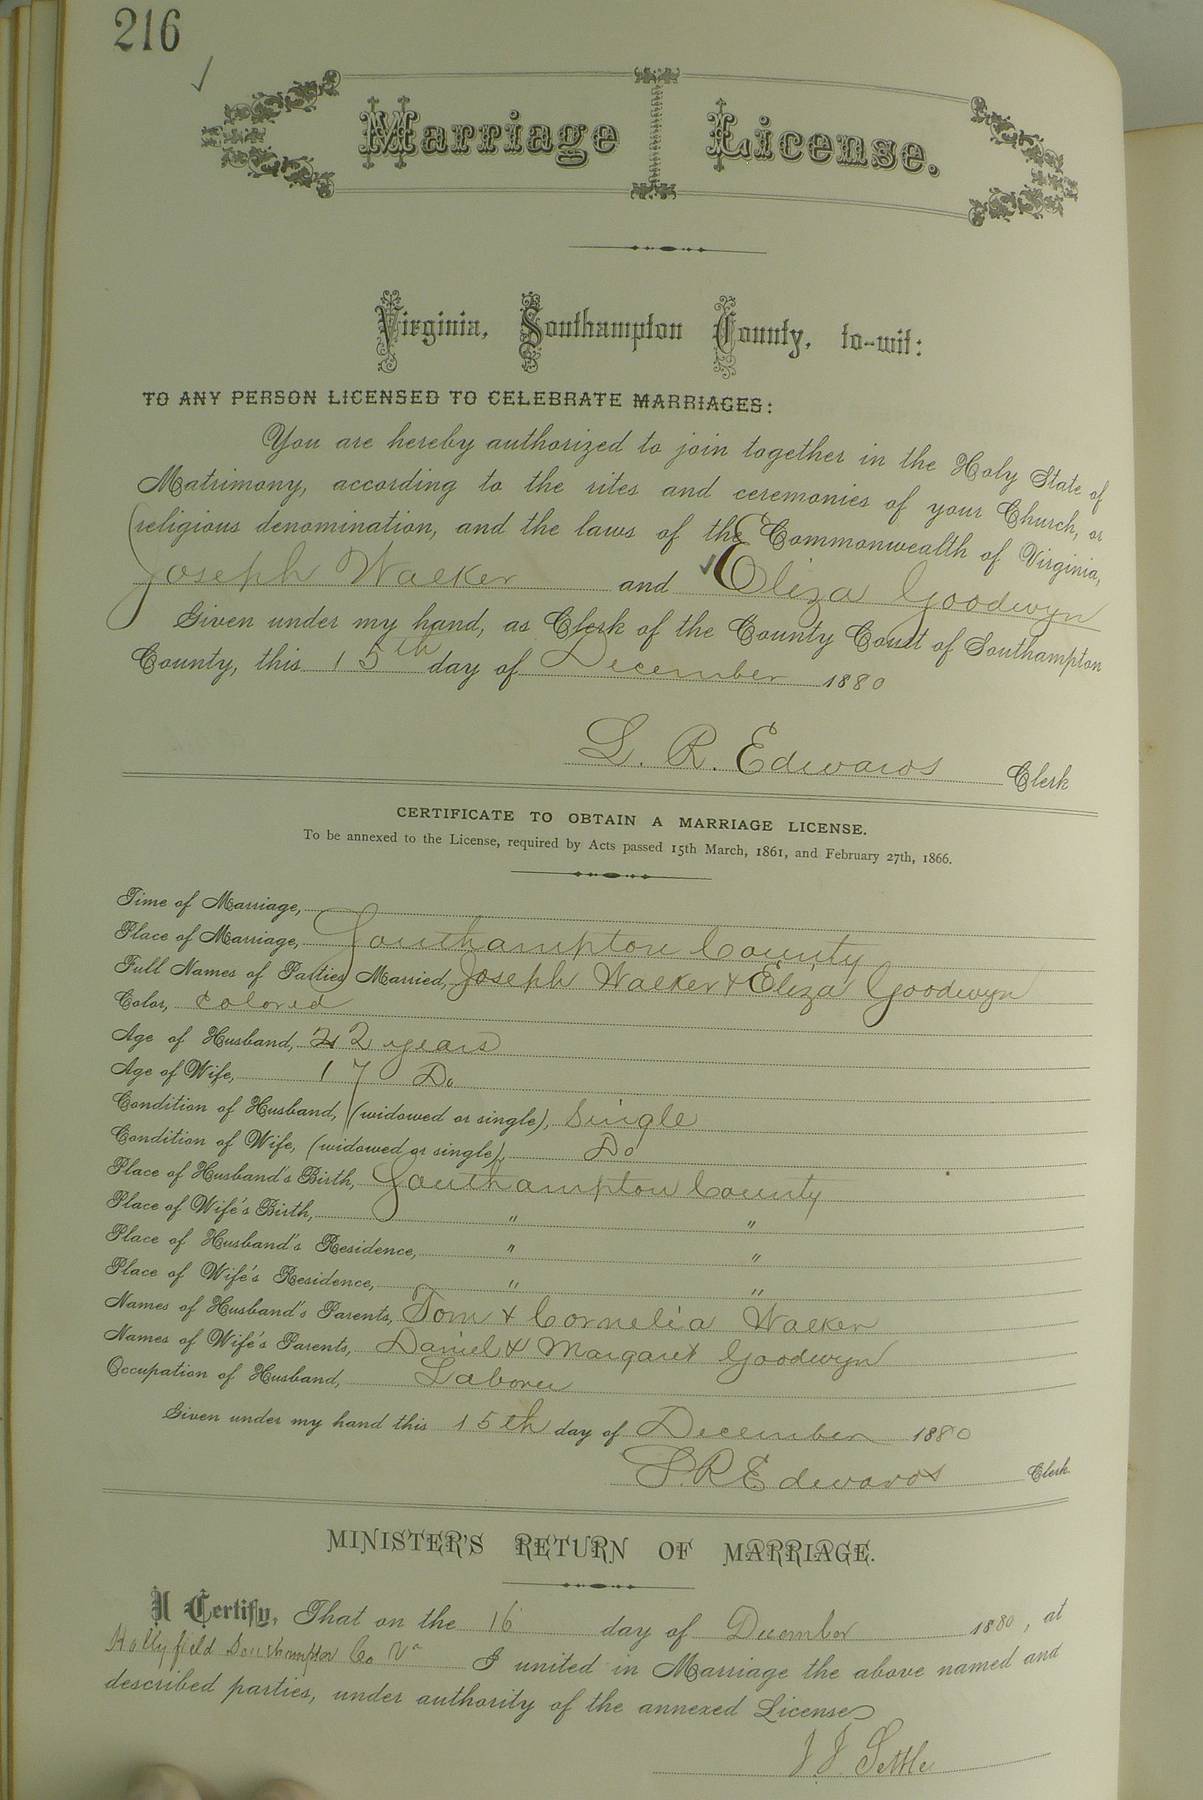 216
Marriage License.
Virginia, Southampton County, to-wit:
TO ANY PERSON LICENSED TO CELEBRATE MARRIAGES:
You are hereby authorized to join together in the Holy State of
Matrimony, according to the rites and ceremonies of your Church, or
religious denomination, and the laws of the Commonwealth of Virginia,
Joseph Walker and Eliza Goodwyn
Given under my hand, as Clerk of the County Court of Southampton
County, this 15th day of December 1880
L. R. Edwards Clerk
CERTIFICATE TO OBTAIN A MARRIAGE LICENSE.
To be annexed to the License, required by Acts passed 15th March, 1861, and February 27th, 1866.
Time of Marriage,
Place of Marriage, Southampton County
Full Names of Parties Married, Joseph Walker & Eliza Goodwyn
Color, Colored
Age of Husband, 22 years
Age of Wife, 17 Do
Condition of Husband, (widowed or single), Single
Condition of Wife, (widowed or single), Do
Place of Husband's Birth, Southampton County
Place of Wife's Birth, " "
Place of Husband's Residence, " "
Place of Wife's Residence, " "
Names of Husband's Parents, Tom & Cornelia Walker
Names of Wife's Parents, Daniel & Margaret Goodwyn
Occupation of Husband, Laborer
Given under my hand this 15th day of December 1880
L. R. Edwards Clerk.
MINISTER'S RETURN OF MARRIAGE.
I Certify, That on the 16 day of December 1880, at
Hollyfield Southampton Co Va I united in Marriage the above named and
described parties, under authority of the annexed License
J. J. Settle